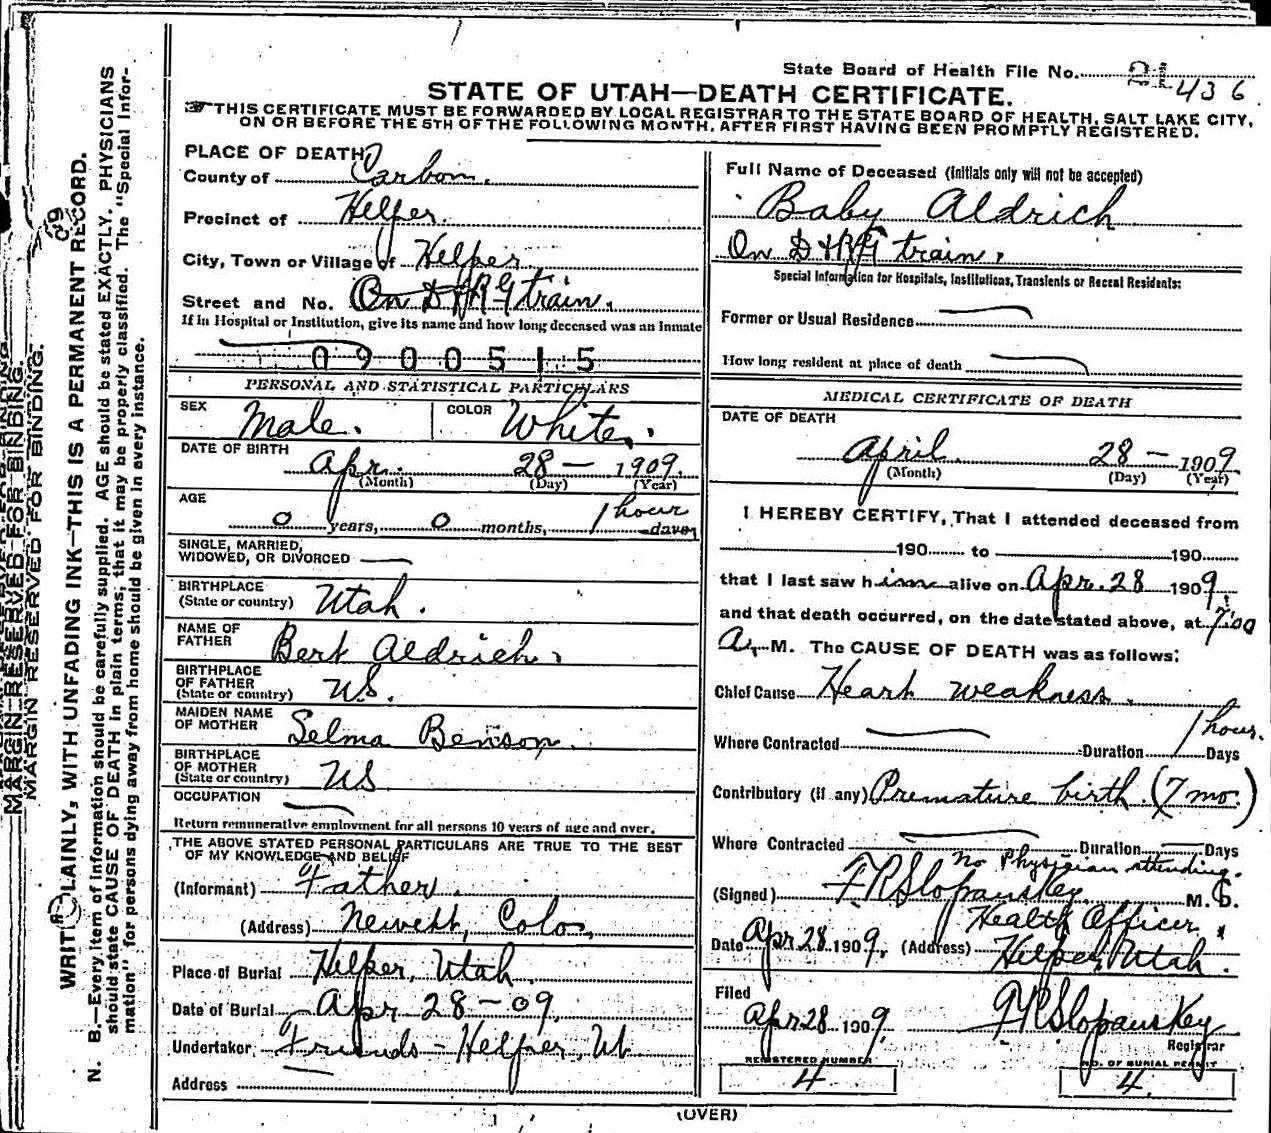 State Board of Health File No. 21 436
STATE OF UTAH—DEATH CERTIFICATE.
THIS CERTIFICATE MUST BE FORWARDED BY LOCAL REGISTRAR TO THE STATE BOARD OF HEALTH, SALT LAKE CITY,
ON OR BEFORE THE 5TH OF THE FOLLOWING MONTH, AFTER FIRST HAVING BEEN PROMPTLY REGISTERED.
PLACE OF DEATH
County of Carbon.
Precinct of Helper.
City, Town or Village of Helper
Street and No. On D & R G train.
If in Hospital or Institution, give its name and how long deceased was an inmate
0900515
PERSONAL AND STATISTICAL PARTICULARS
SEX Male. COLOR White.
DATE OF BIRTH Apr. 28 — 1909.
(Month) (Day) (Year)
AGE 0 years, 0 months, 1 hour days
SINGLE, MARRIED,
WIDOWED, OR DIVORCED —
BIRTHPLACE
(State or country) Utah.
NAME OF
FATHER Bert Aldrich.
BIRTHPLACE
OF FATHER
(State or country) US.
MAIDEN NAME
OF MOTHER Selma Benson.
BIRTHPLACE
OF MOTHER
(State or country) US
OCCUPATION
Return remunerative employment for all persons 10 years of age and over.
THE ABOVE STATED PERSONAL PARTICULARS ARE TRUE TO THE BEST
OF MY KNOWLEDGE AND BELIEF
(Informant) Father.
(Address) Newett, Colo.
Place of Burial Helper, Utah.
Date of Burial Apr 28 - 09.
Undertaker Friends - Helper, Ut.
Address
Full Name of Deceased (Initials only will not be accepted)
Baby Aldrich
On D & R G train.
Special Information for Hospitals, Institutions, Transients or Recent Residents:
Former or Usual Residence
How long resident at place of death
MEDICAL CERTIFICATE OF DEATH
DATE OF DEATH
April 28 — 1909
(Month) (Day) (Year)
I HEREBY CERTIFY, That I attended deceased from
190 to 190
that I last saw him alive on Apr. 28 1909,
and that death occurred, on the date stated above, at 7:00
A. M. The CAUSE OF DEATH was as follows:
Chief Cause Heart weakness.
Where Contracted Duration 1 hour. Days
Contributory (if any) Premature birth. (7 mo.)
Where Contracted Duration Days
No Physician attending.
(Signed) F R Slopanskey M. D.
Health Officer,
Date Apr 28 1909. (Address) Helper, Utah.
Filed
Apr 28 1909. F R Slopanskey
Registrar
REGISTERED NUMBER
4
NO. OF BURIAL PERMIT
4.
(OVER)
MARGIN RESERVED FOR BINDING.
MARGIN RESERVED FOR BINDING.
WRITE PLAINLY, WITH UNFADING INK—THIS IS A PERMANENT RECORD.
N. B.—Every item of information should be carefully supplied. AGE should be stated EXACTLY. PHYSICIANS
should state CAUSE OF DEATH in plain terms, that it may be properly classified. The "Special Infor-
mation" for persons dying away from home should be given in every instance.